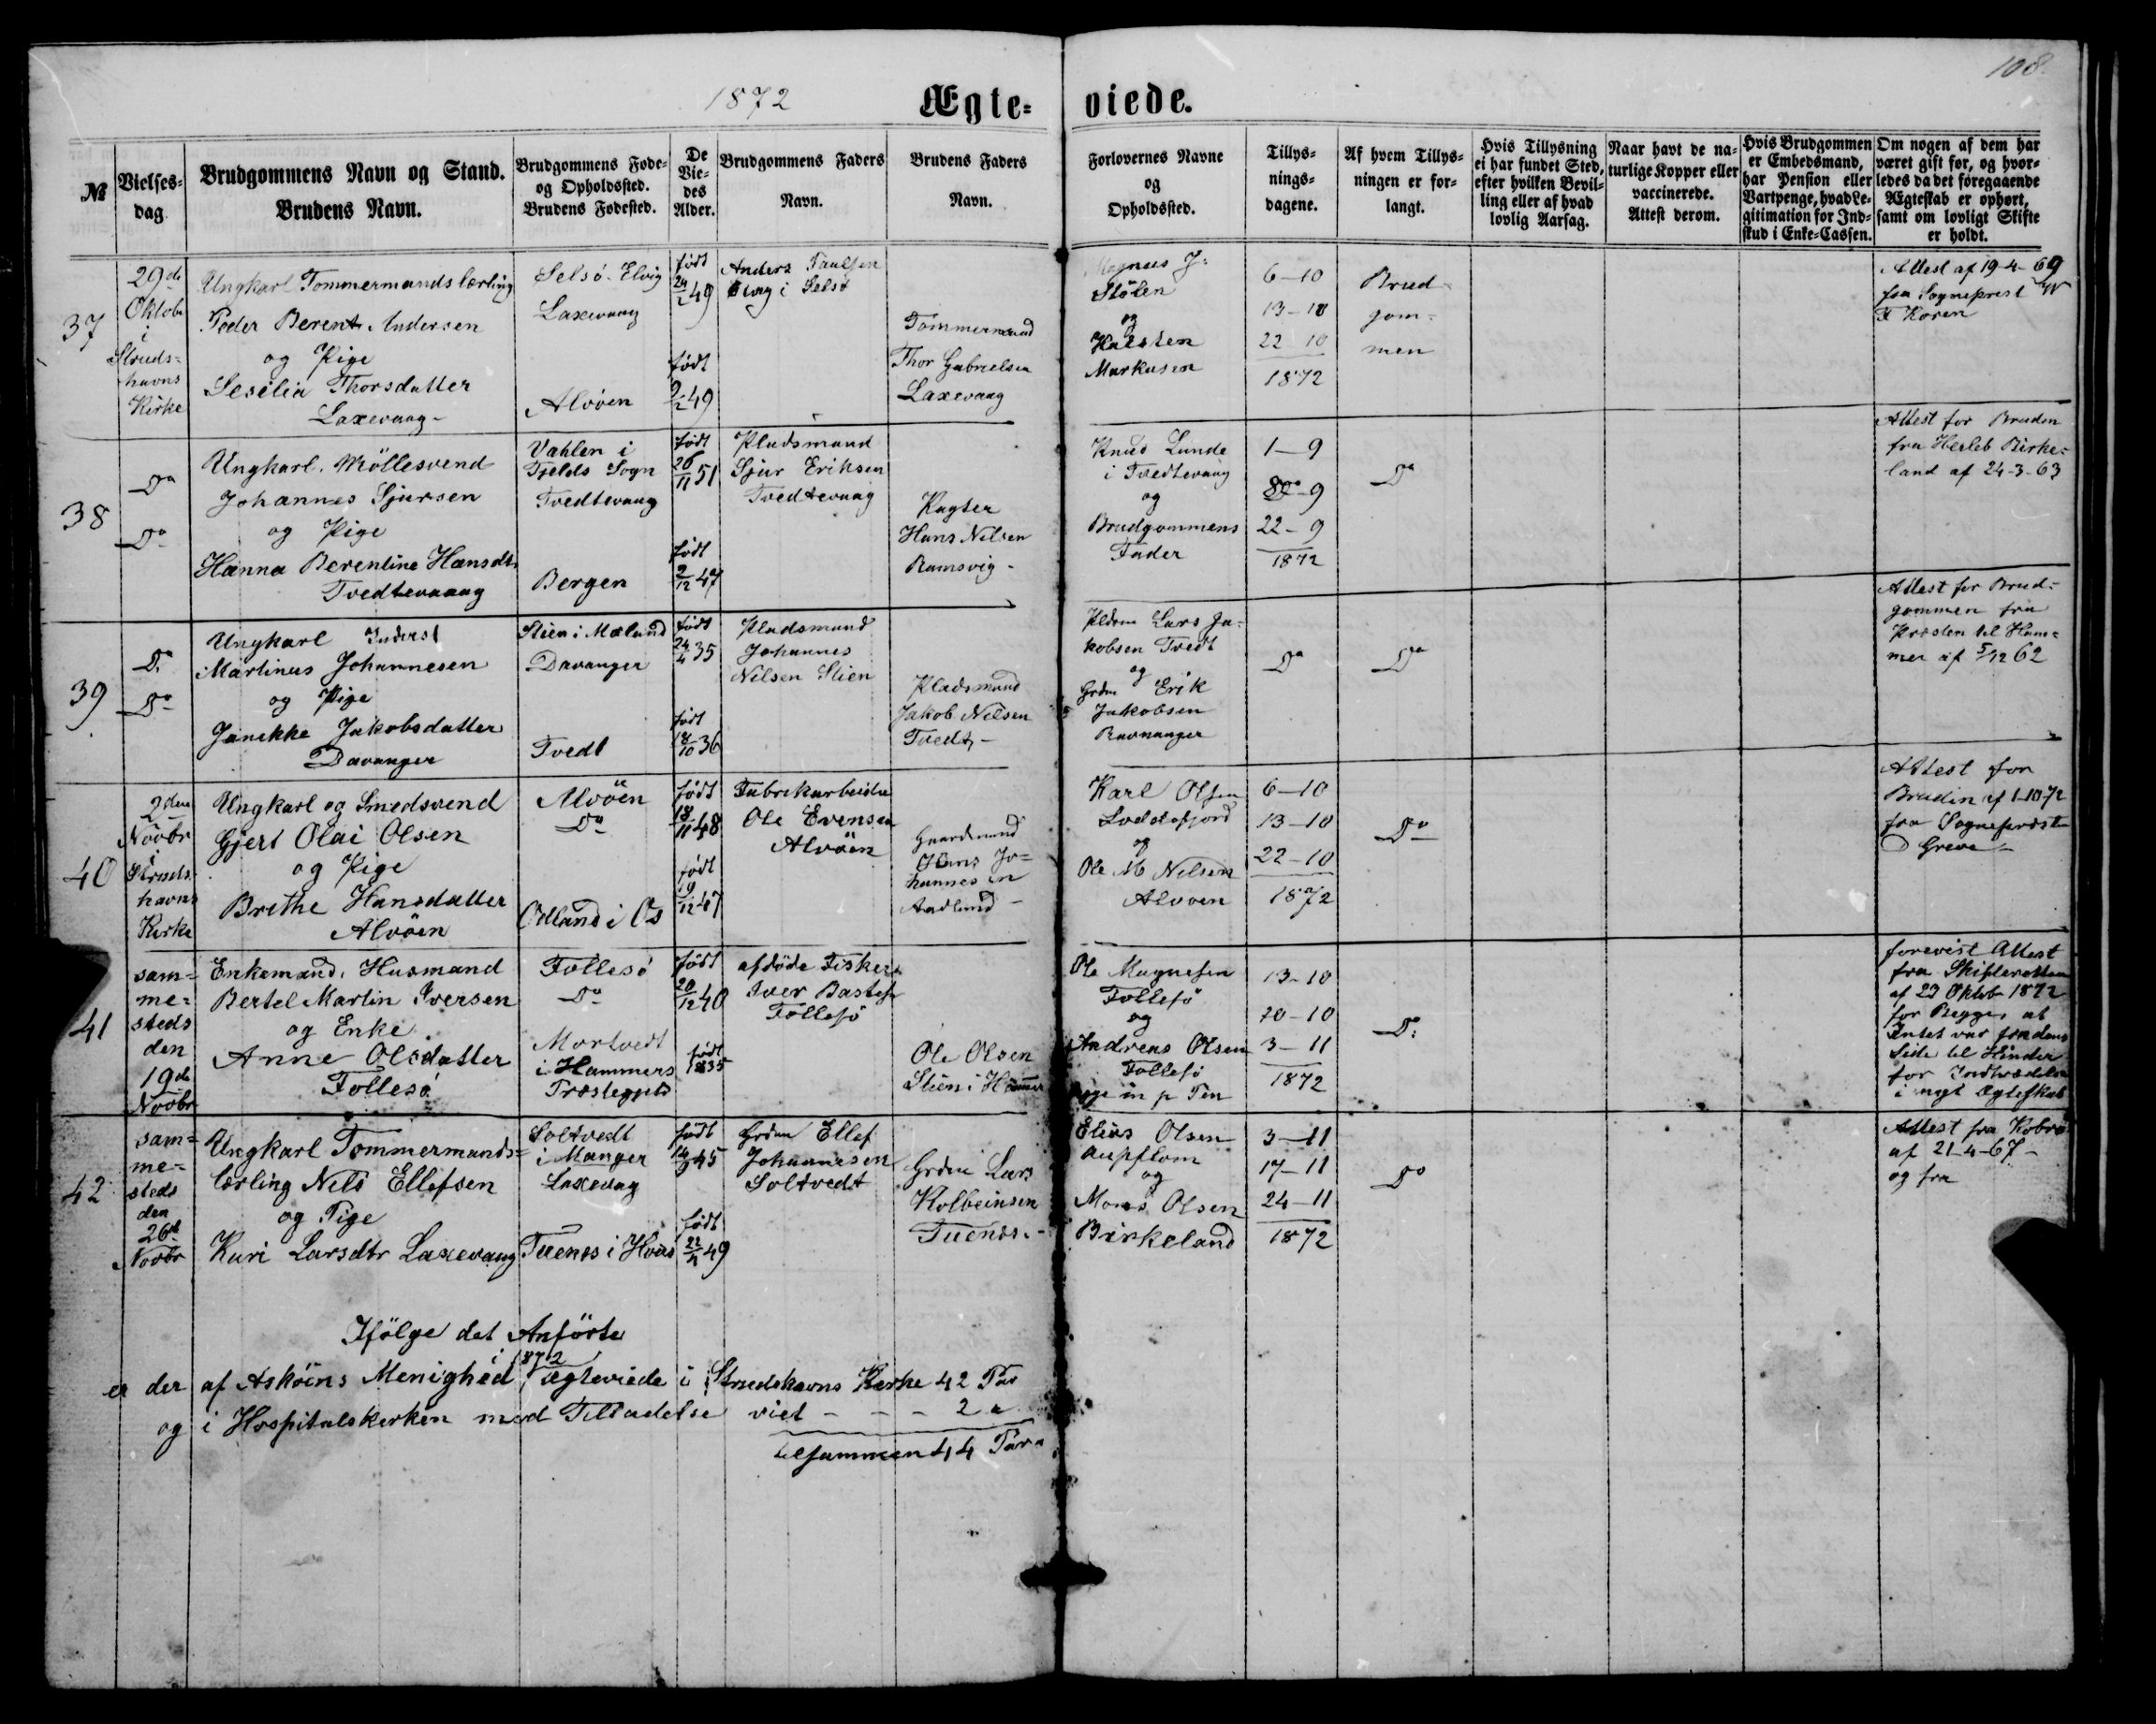 108
1872
Ægte-
viede.
№
Vielses-
dag.
Brudgommens Navn og Stand.
Brudens Navn.
Brudgommens Føde-
og Opholdssted.
Brudens Fødested.
De
Vie-
des
Alder.
Brudgommens Faders
Navn.
Brudens Faders
Navn.
Forlovernes Navne
og
Opholdssted.
Tillys-
nings-
dagene.
Af hvem Tillys-
ningen er for-
langt.
Hvis Tillysning
ei har fundet Sted,
efter hvilken Bevil-
ling eller af hvad
lovlig Aarsag.
Naar havt de na-
turlige Kopper eller
vaccinerede.
Attest derom.
Hvis Brudgommen
er Embedsmand,
har Pension eller
Vartpenge, hvad Le-
gitimation for Ind-
skud i Enke-Cassen.
Om nogen af dem har
været gift før, og hvor-
ledes da det foregaaende
Ægteskab er ophørt,
samt om lovligt Skifte
er holdt.
37
29de
Oktobr
i
Struds-
havns
Kirke
Ungkarl Tømmermandslærling
Peder Berent Andersen
og Pige
Sesilia Thorsdatter
Laxevaag
Selsö Elvig
Laxevaag
Alvöen
født
24/2 49
født
2/2 49
Anders Paulsen
Elvig i Selsö
Tømmermand
Thor Gabrielsen
Laxevaag
Magnus J:
Stölen
og
Halsten
Markusen
6-10
13-10
22-10
1872
Brud-
gom-
men
Attest af 19-4-69
fra Sogneprest
F Koren
38
Do
Do
Ungkarl. Möllesvend
Johannes Sjursen
og Pige
Hanna Berentine Hansdtr
Tvedtevaag
Vahlen i
Fjelds Sogn
Tvedtevaag
Bergen
født
26/11 51
født
2/12 47
Pladsmand
Sjur Eriksen
Tvedtevaag
Hans Nilsen
Ramsvig
Knud Lunde
i Tvedtevaag
og
Brudgommens
Fader
1-9
22-9
1872
Do
Attest for Bruden
fra Herleb Birke-
land af 24-3-63
39
Do
Do
Ungkarl Inderst
Martinus Johannesen
og Pige
Janikke Jakobsdatter
Davanger
Stien i Mæland
Davanger
Tvedt
født
24/4 35
født
18/10 36
Pladsmand
Johannes
Nilsen Stien
Pladsmand
Jakob Nilsen
Tvedt
Pldsm Lars Ja-
kobsen Tvedt
og
Grdm Erik
Jakobsen
Ravnanger
Do
Do
Attest for Brud-
gommen fra
Presten til Ham-
mer af 5/12 62
40
2den
Novbr
i
Struds-
havns
Kirke
Ungkarl og Smedsvend
Gjert Olai Olsen
og Pige
Brithe Hansdatter
Alvöen
Alvöen
Do
Ødland i Os
født
18/11 48
født
19/12 47
Fabrikarbeider
Ole Evensen
Alvöen
Gaardmand
Hans Jo-
hannesen
Karl Olsen
Loddefjord
og
Ole M Nilsen
Alvöen
6-10
13-10
22-10
1872
Do
Attest for
Bruden af 1-10-72
fra Sogneprest
Greve
41
sam-
me-
steds
den
19de
Novbr
Enkemand. Husmand
Bertel Martin Iversen
og Enke
Anne Olsdatter
Follesö
Follesö
Do
Mortvedt
i Hammers
Præstegjeld
født
20/12 40
født
1835
afdöde Fisker
Iver Bastesen
Follesö
Ole Olsen
Stien i Hammer
Ole Magnesen
Follesö
og
Andreas Olsen
Follesö
13-10
20-10
3-11
1872
Do
forevist Attest
fra Skifteretten
af 23 Oktbr 1872
for Begge, at
Intet var fra dens
Side til Hinder
for Indtrædelse
i nyt Ægteskab
42
sam-
me-
steds
den
26de
Novbr
Ungkarl Tømmermands-
lærling Nels Ellefsen
og Pige
Kari Larsdtr Laxevaag
Soltvedt
i Manger
Laxevaag
født
14/9 45
født
22/4 49
Grdm Ellef
Johannesen
Soltvedt
Grdm Lars
Kolbeinsen
Elias Olsen
og
Mons Olsen
Birkeland
3-11
17-11
24-11
1872
Do
Attest fra Kobro
af 21-4-67
og fra
Ifölge det Anförte
i 1872
er der af Asköens Menighed ægteviede i Strudshavns Kirke 42 Par
og i Hospitalskirken med Tilladelse viet - - - 2 "
tilsammen 44 Par